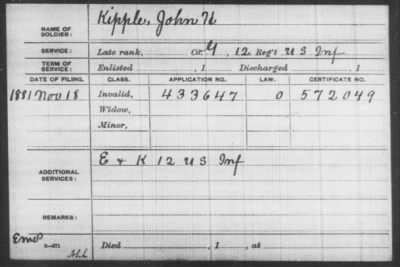 NAME OF SOLDIER: Kipple, John U
SERVICE: Late rank, Co. G, 12 Reg't U S Inf
TERM OF SERVICE: Enlisted , 1 Discharged , 1
DATE OF FILING. CLASS. APPLICATION NO. LAW. CERTIFICATE NO.
1881 Nov 18 Invalid, 433647 0 572049
Widow,
Minor,
ADDITIONAL SERVICES: E & K 12 U S Inf
REMARKS:
Died , 1 , at